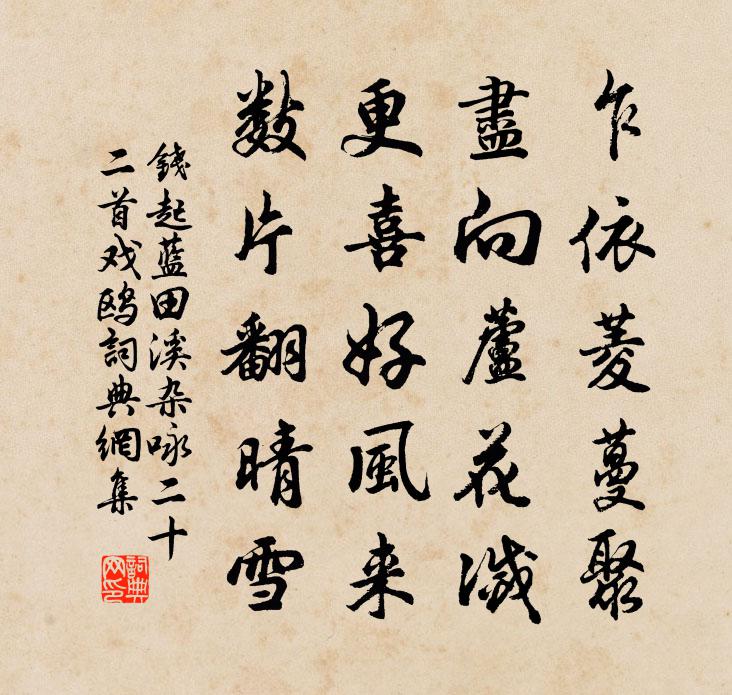 乍依菱蔓聚
盡向蘆花滅
更喜好風来
数片翻晴雪
錢起蓝田溪杂咏二十
二首戏鸥詞典網集
詞典
网印